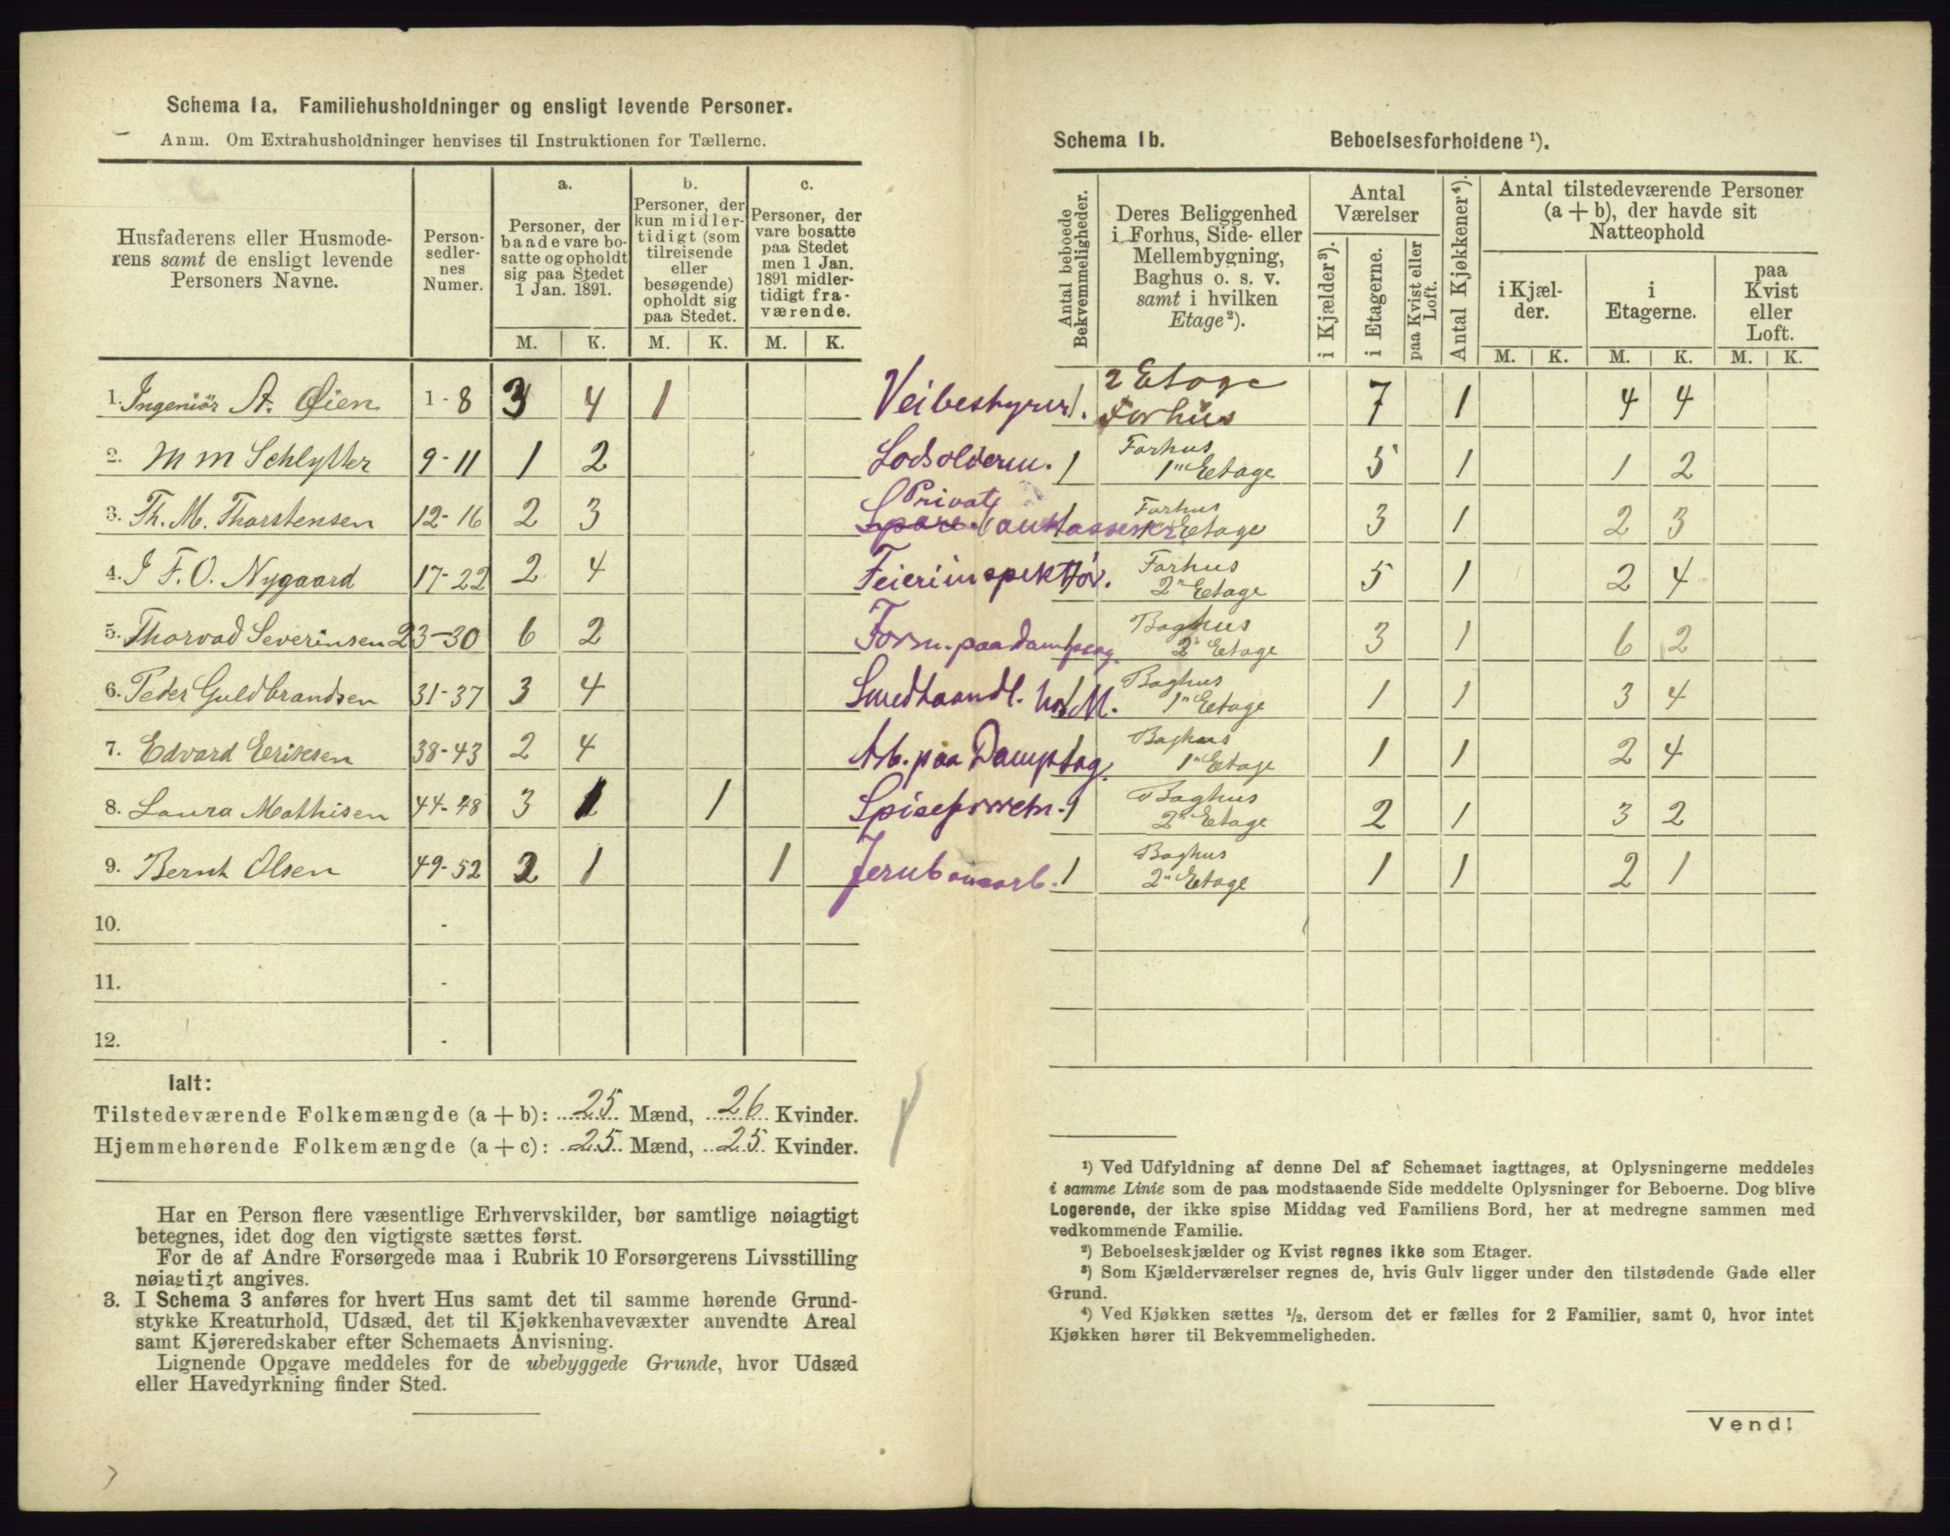 Schema 1a. Familiehusholdninger og ensligt levende Personer.
Anm. Om Extrahusholdninger henvises til Instruktionen for Tællerne.
Husfaderens eller Husmoderens samt de ensligt levende Personers Navne.
Personsedlernes Numer.
a. Personer, der baade vare bosatte og opholdt sig paa Stedet 1 Jan. 1891.
b. Personer, der kun midlertidigt (som tilreisende eller besøgende) opholdt sig paa Stedet.
c. Personer, der vare bosatte paa Stedet men 1 Jan. 1891 midlertidigt fraværende.
M. K. M. K. M. K.
1. Ingeniör A. Øien 1-8 3 4 1 Veibestyrer
2. M M Schlytter 9-11 1 2 Lodsolderm.
3. Th. M. Thorstensen 12-16 2 3 Privat
4. J F. O. Nygaard 17-22 2 4 Feierinspektör.
5. Thorvad Severinsen 23-30 6 2 Form. paa Dampsag.
6. Peder Guldbrandsen 31-37 3 4 Smedhaandl.
7. Edvard Eriksen 38-43 2 4 Arb. paa Dampsag.
8. Laura Mathisen 44-48 3 1 1 Spiseforretn.
9. Bernt Olsen 49-52 2 1 1 Jernbanearb.
10. -
11. -
12. -
Ialt:
Tilstedeværende Folkemængde (a + b): 25 Mænd, 26 Kvinder.
Hjemmehørende Folkemængde (a + c): 25 Mænd, 25 Kvinder.
Har en Person flere væsentlige Erhvervskilder, bør samtlige nøiagtigt
betegnes, idet dog den vigtigste sættes først.
For de af Andre Forsørgede maa i Rubrik 10 Forsørgerens Livsstilling
nøiagtigt angives.
3. I Schema 3 anføres for hvert Hus samt det til samme hørende Grund-
stykke Kreaturhold, Udsæd, det til Kjøkkenhavevæxter anvendte Areal
samt Kjøreredskaber efter Schemaets Anvisning.
Lignende Opgave meddeles for de ubebyggede Grunde, hvor Udsæd
eller Havedyrkning finder Sted.
Schema 1b. Beboelsesforholdene ¹).
Antal beboede Bekvemmeligheder.
Deres Beliggenhed i Forhus, Side- eller Mellembygning, Baghus o. s. v. samt i hvilken Etage²).
Antal Værelser
i Kjælder³).
i Etagerne.
paa Kvist eller Loft.
Antal Kjøkkener⁴).
Antal tilstedeværende Personer (a + b), der havde sit Natteophold
i Kjælder.
i Etagerne.
paa Kvist eller Loft.
M. K. M. K. M. K.
1. 2 Etage Forhus 7 1 4 4
1 Forhus 1ⁿ Etage 5 1 1 2
1 Forhus 1ⁿ Etage 3 1 2 3
1 Forhus 2ⁿ Etage 5 1 2 4
1 Baghus 2ⁿ Etage 3 1 6 2
1 Baghus 1ⁿ Etage 1 1 3 4
1 Baghus 1ⁿ Etage 1 1 2 4
1 Baghus 2ⁿ Etage 2 1 3 2
1 Baghus 2ⁿ Etage 1 1 2 1
¹) Ved Udfyldning af denne Del af Schemaet iagttages, at Oplysningerne meddeles
i samme Linie som de paa modstaaende Side meddelte Oplysninger for Beboerne. Dog blive
Logerende, der ikke spise Middag ved Familiens Bord, her at medregne sammen med
vedkommende Familie.
²) Beboelseskjælder og Kvist regnes ikke som Etager.
³) Som Kjælderværelser regnes de, hvis Gulv ligger under den tilstødende Gade eller
Grund.
⁴) Ved Kjøkken sættes ½, dersom det er fælles for 2 Familier, samt 0, hvor intet
Kjøkken hører til Bekvemmeligheden.
Vend!